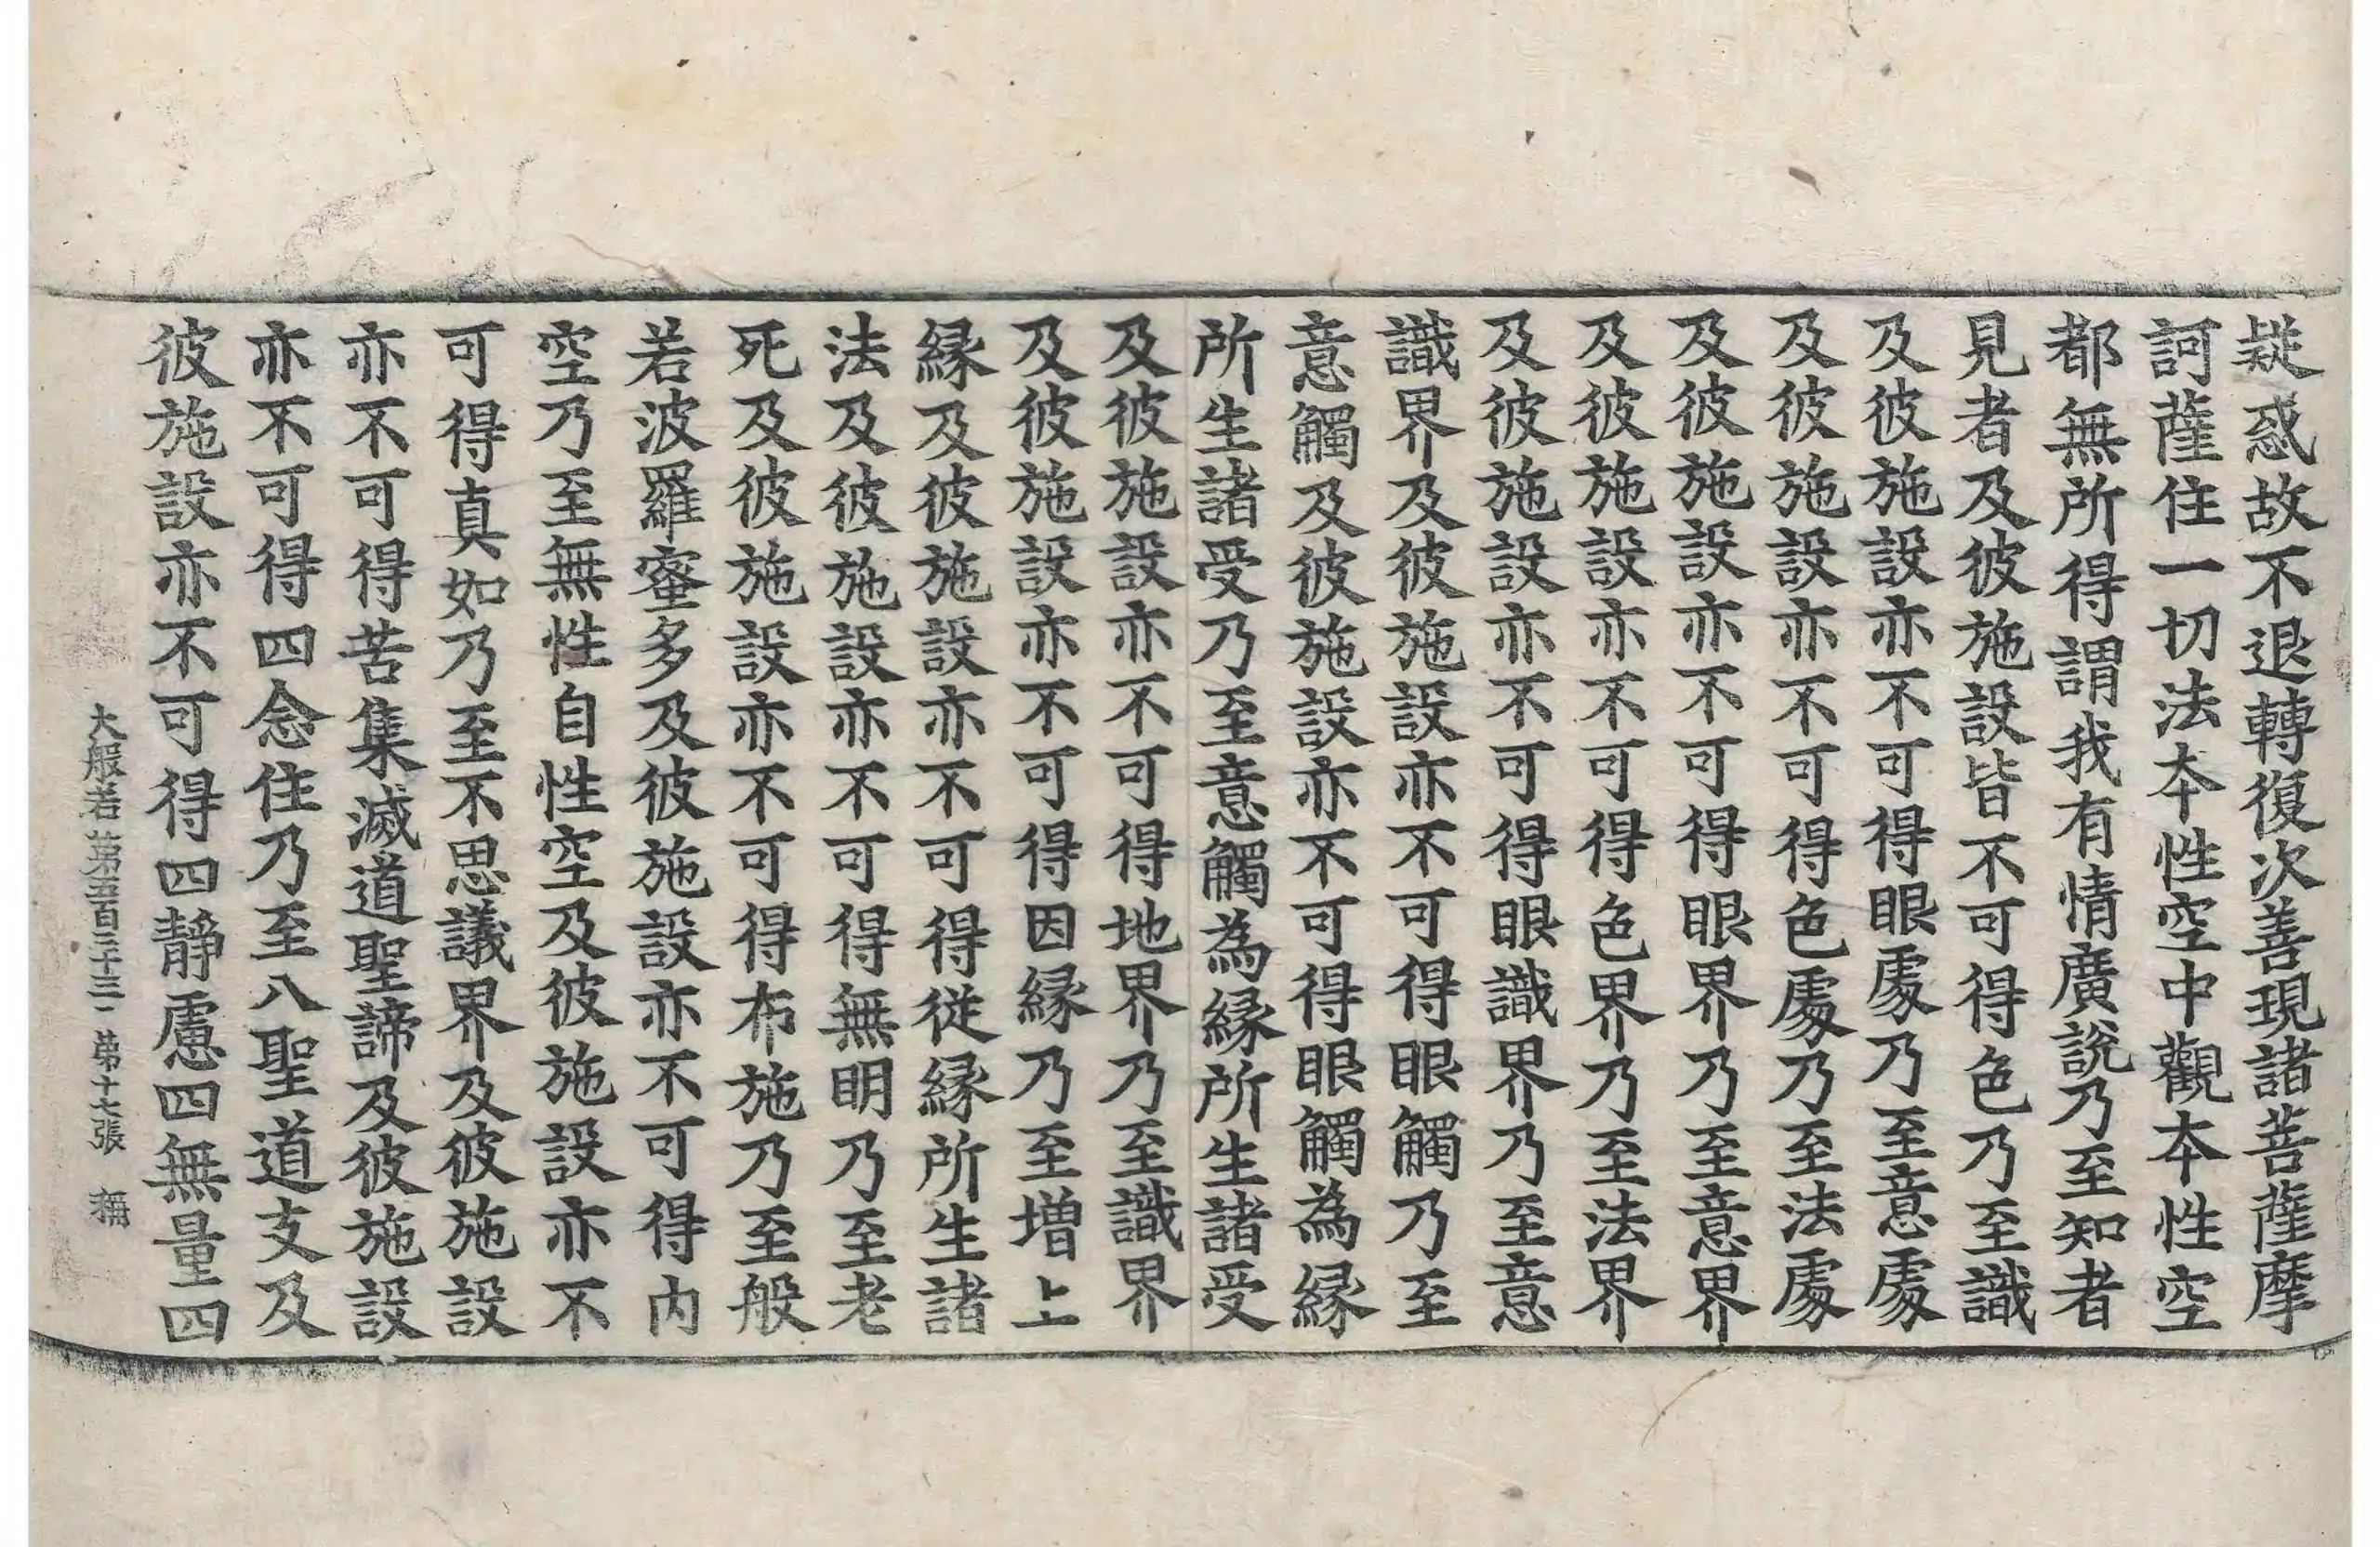 疑惑故不退轉復次善現諸菩薩摩
訶薩住一切法本性空中觀本性空
都無所得謂我有情廣說乃至知者
見者及彼施設皆不可得色乃至識
及彼施設亦不可得眼處乃至意處
及彼施設亦不可得色處乃至法處
及彼施設亦不可得眼界乃至意界
及彼施設亦不可得色界乃至法界
及彼施設亦不可得眼識界乃至意
識界及彼施設亦不可得眼觸乃至
意觸及彼施設亦不可得眼觸為緣
所生諸受乃至意觸為緣所生諸受
及彼施設亦不可得地界乃至識界
及彼施設亦不可得因緣乃至增上
緣及彼施設亦不可得從緣所生諸
法及彼施設亦不可得無明乃至老
死及彼施設亦不可得布施乃至般
若波羅蜜多及彼施設亦不可得內
空乃至無性自性空及彼施設亦不
可得真如乃至不思議界及彼施設
亦不可得苦集滅道聖諦及彼施設
亦不可得四念住乃至八聖道支及
彼施設亦不可得四靜慮四無量四
大般若第五百三十三 第十七張 稱